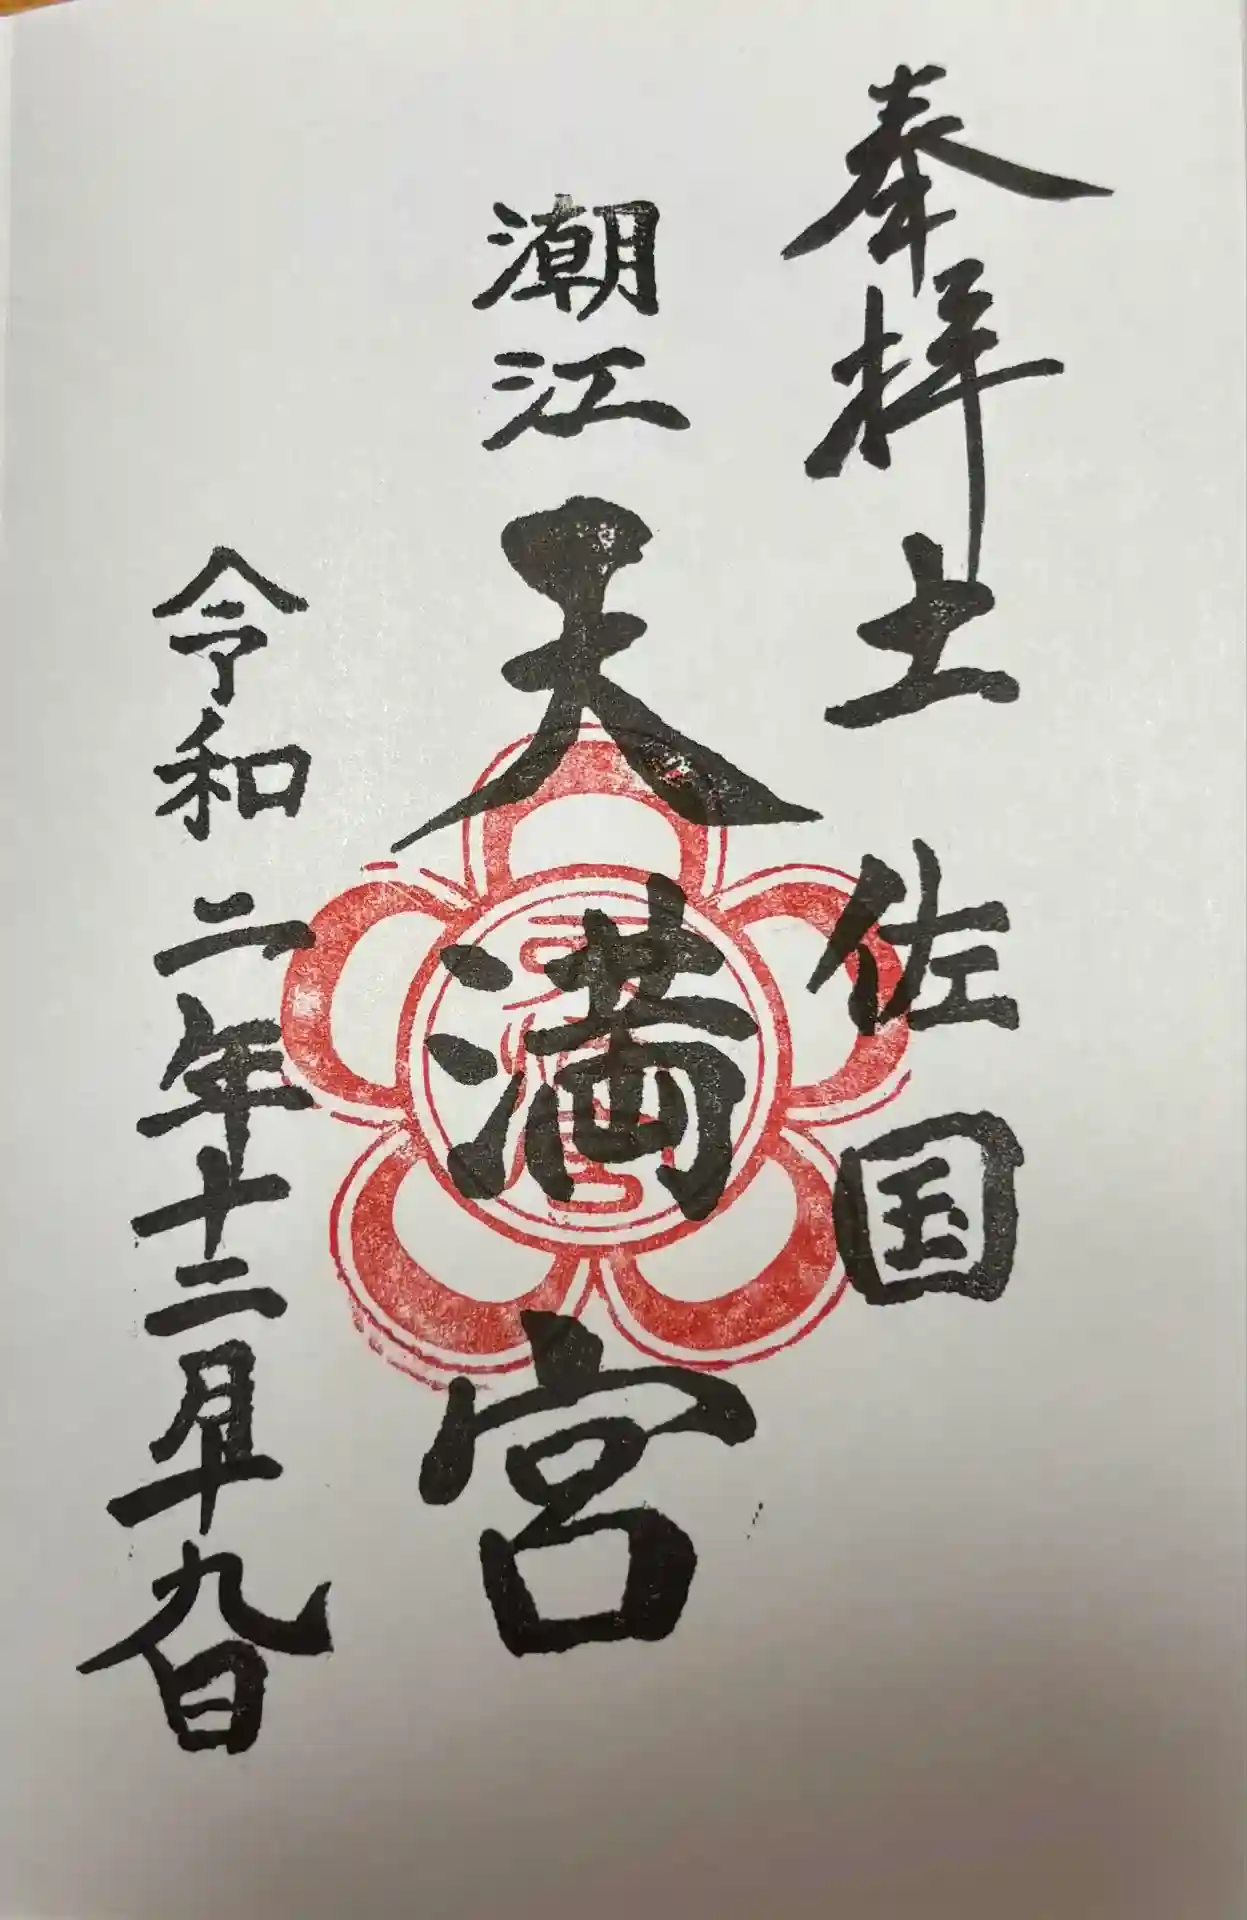 奉拝 土佐国
潮江天満宮
令和二年十二月廿九日